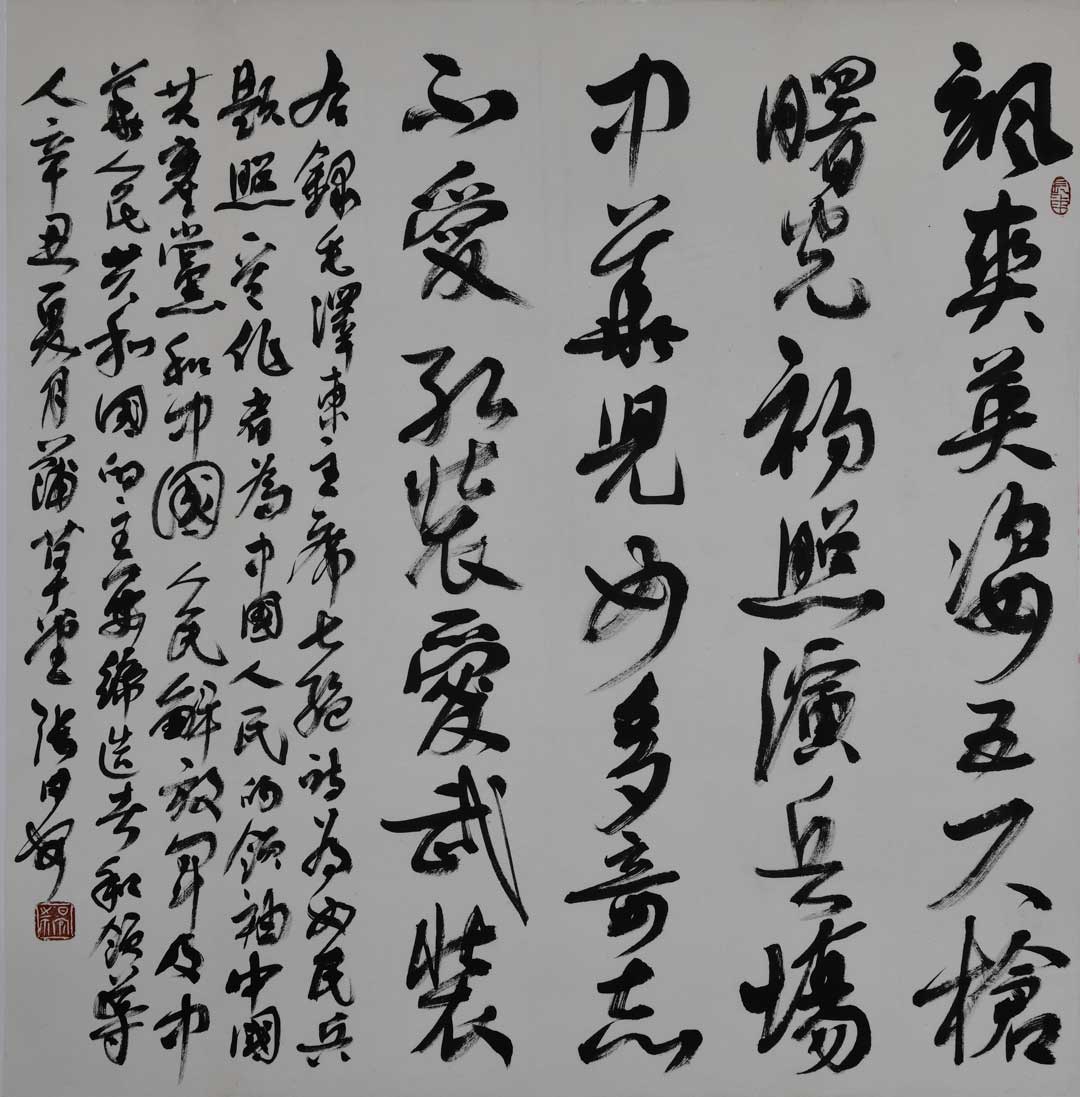 颯爽英姿五尺槍
曙光初照演兵場
中華兒女多奇志
不愛紅裝愛武裝
右錄毛澤東主席七絕詩為女民兵
題照一首作者為中國人民的領袖中國
共產黨和中國人民解放軍及中
華人民共和國的主要締造者和領導
人辛丑夏月蒲草堂張